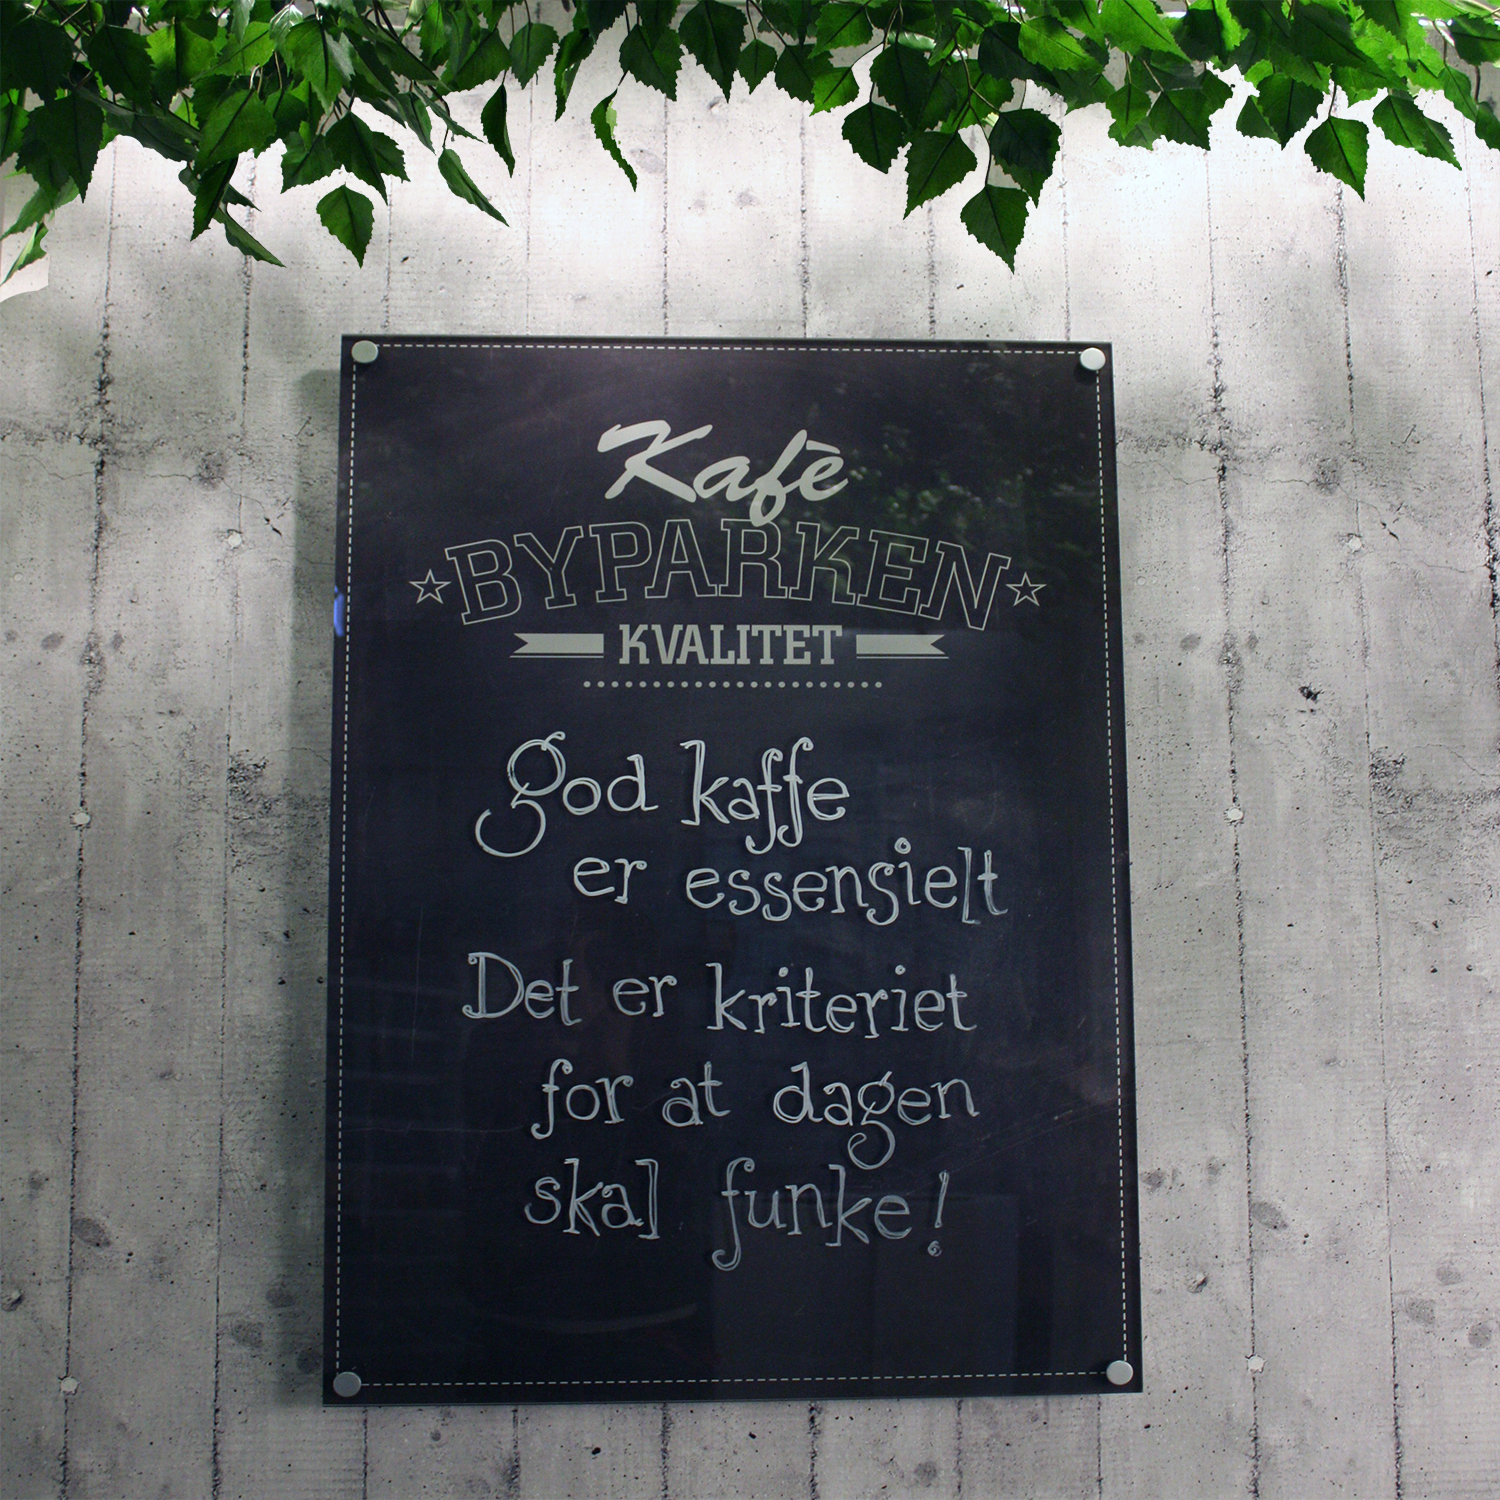 Kafè
BYPARKEN
KVALITET
god kaffe
er essensielt
Det er kriteriet
for at dagen
skal funke!